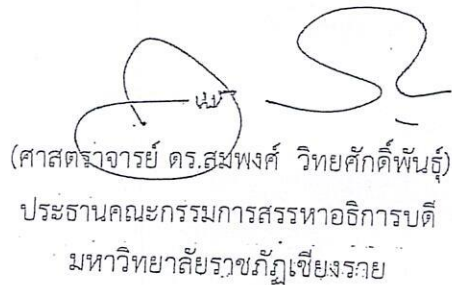 (ศาสตราจารย์ ดร.สมพงศ์ วิทยศักดิ์พันธุ์)
ประธานคณะกรรมการสรรหาอธิการบดี
มหาวิทยาลัยราชภัฏเชียงราย